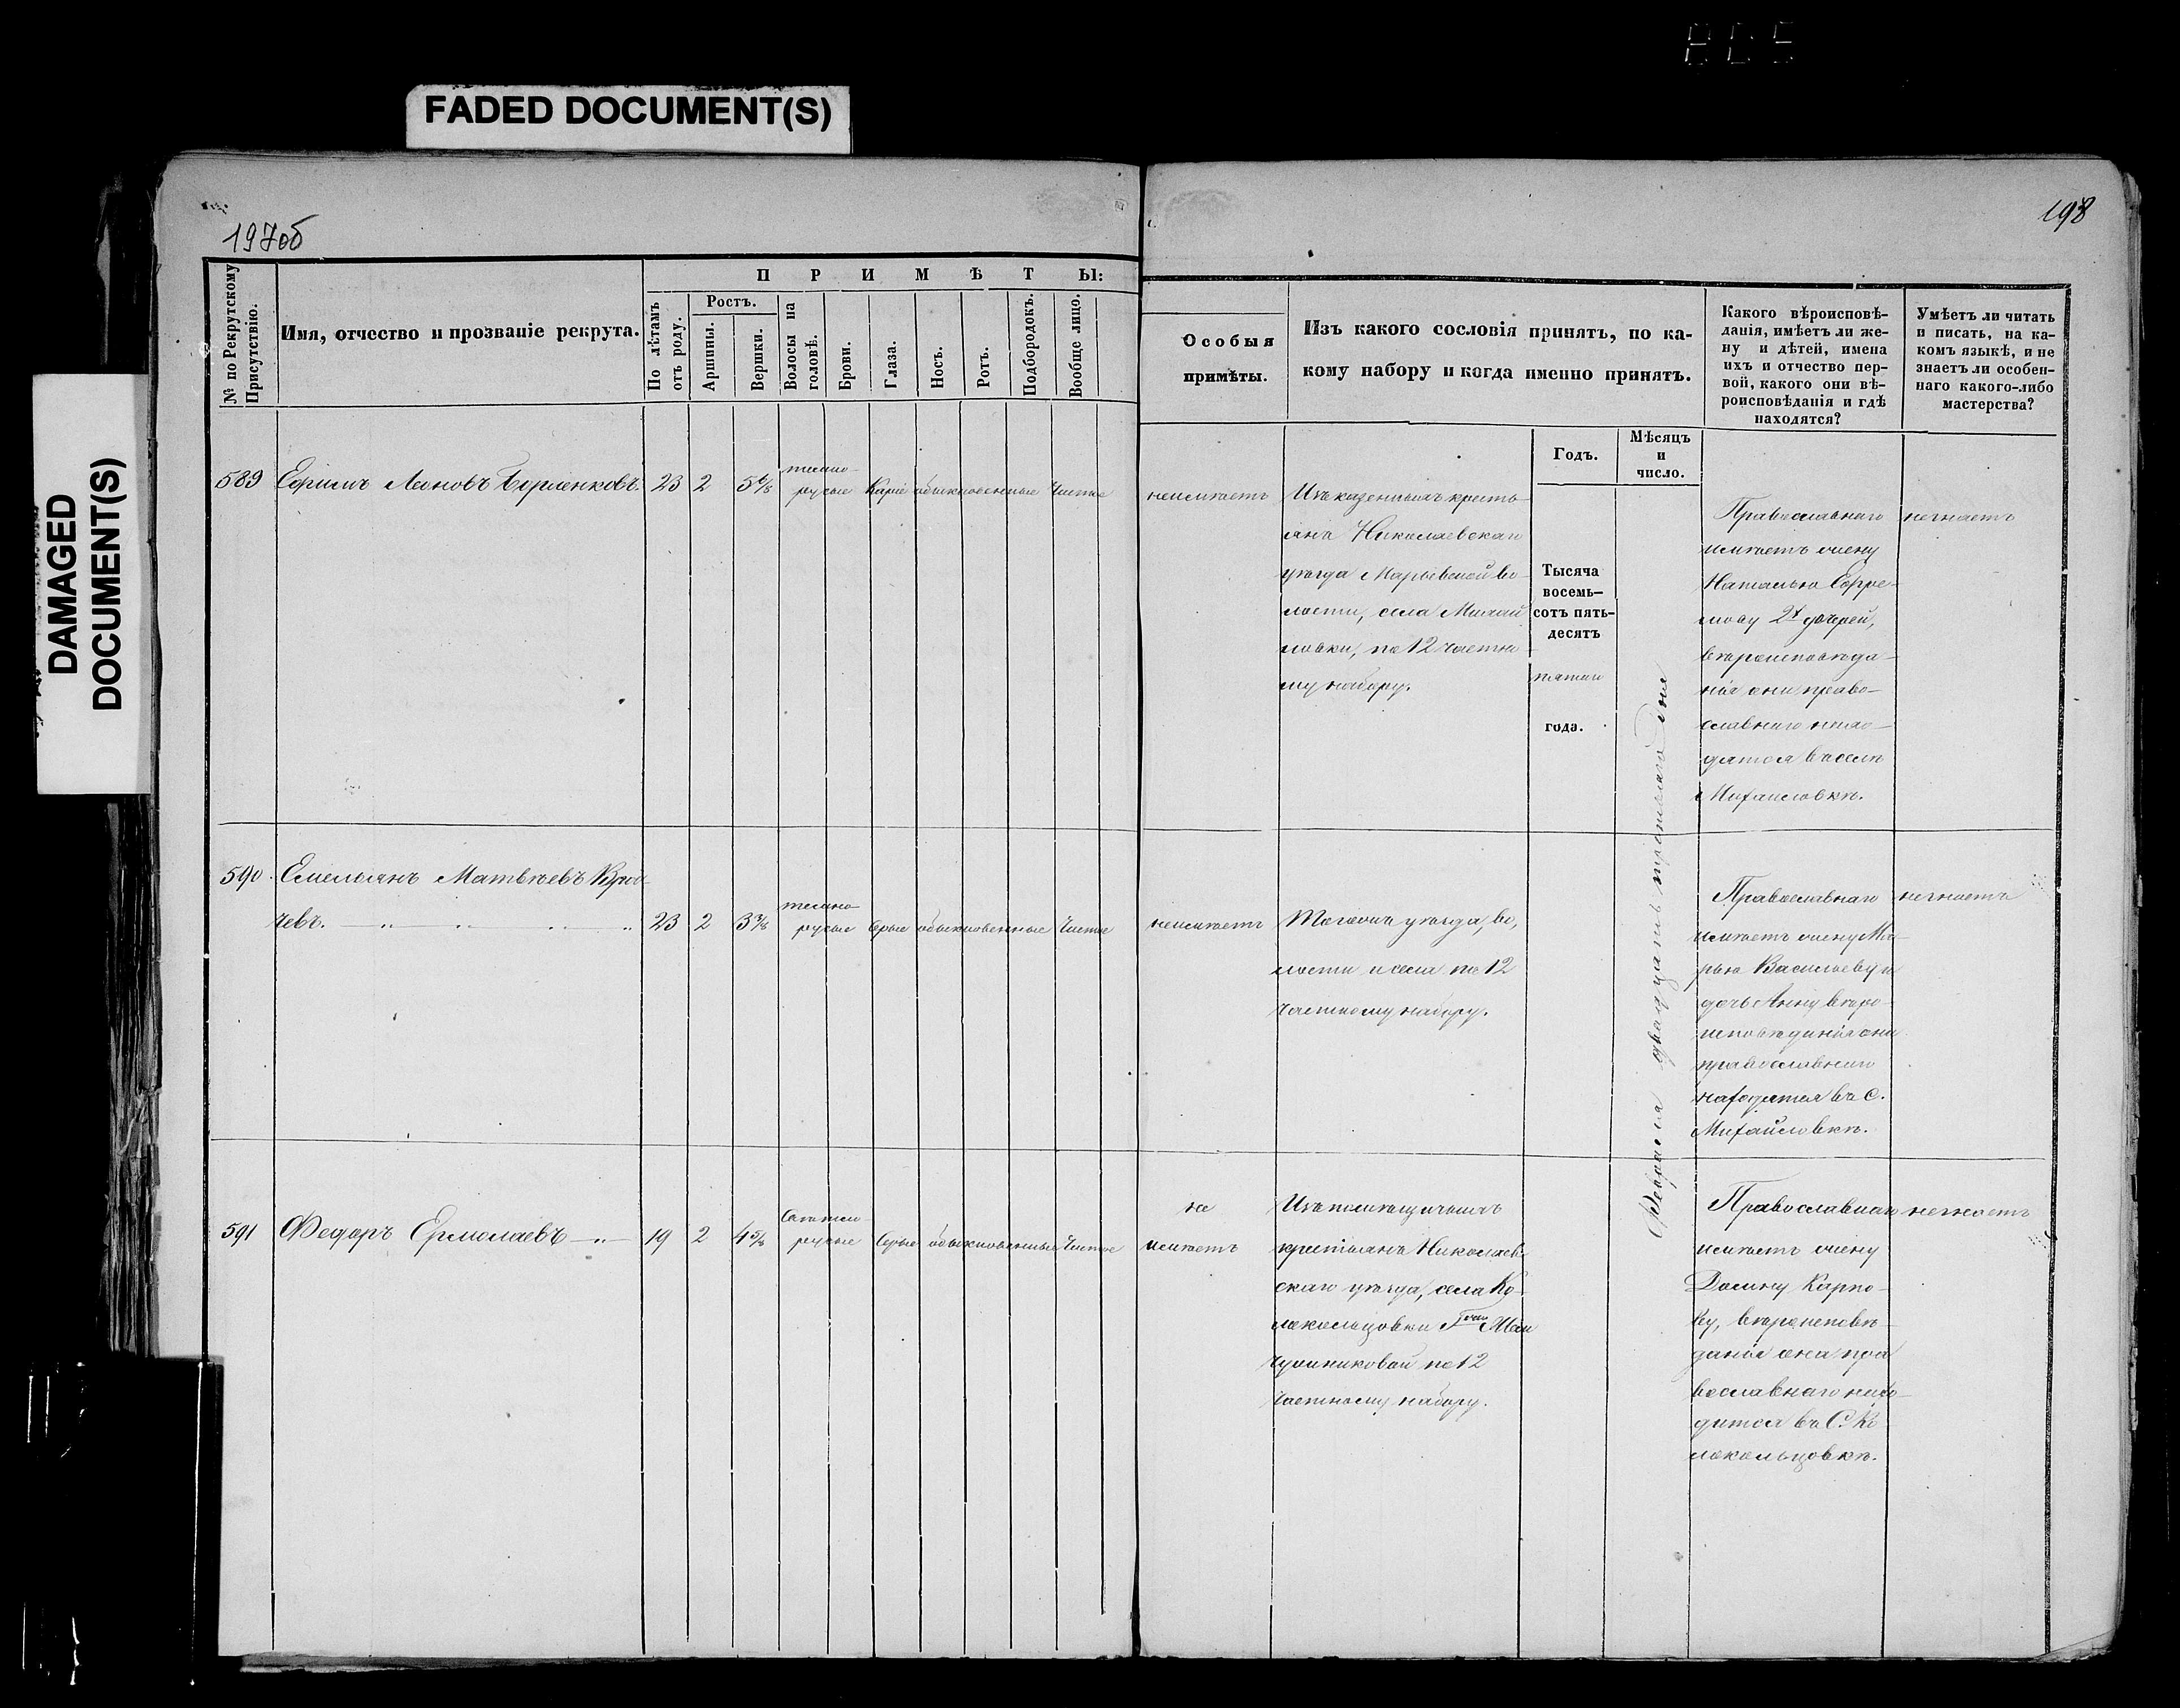 FADED DOCUMENT(S)
DAMAGED
DOCUMENT(S)
197об
198
№ по Рекрутскому
Присутствію.
Имя, отчество и прозваніе рекрута.
ПРИМѢТЫ:
По лѣтамъ
отъ роду.
Ростъ.
Аршины.
Вершки.
Волосы на
головѣ.
Брови.
Глаза.
Носъ.
Ротъ.
Подбородокъ.
Вообще лицо.
Особыя
примѣты.
Изъ какого сословія принятъ, по ка-
кому набору и когда именно принятъ.
Какого вѣроисповѣ-
данія, имѣетъ ли же-
ну и дѣтей, имена
ихъ и отчество пер-
вой, какого они вѣ-
роисповѣданія и гдѣ
находятся?
Умѣетъ ли читать
и писать, на ка-
комъ языкѣ, и не
знаетъ ли особен-
наго какого-либо
мастерства?
Годъ.
Мѣсяцъ
и
число.
589
Ефимъ
23
2
5 6/8
темно-
русые
Карие
обыкновенные
Чистое
неимѣетъ
Изъ казенныхъ кресть-
янъ Николаевскаго
уѣзда Марьевской во-
лости, села Михай
ловки, по 12 частно
му набору.
Тысяча
восемь-
сотъ пять-
десятъ
пятаго
года.
Февраля двадцать третьяго дня
Православнаго
имѣетъ жену
Наталью Ефре-
мову 2х дочерей,
вѣроисповѣда-
нія они право-
славнаго нахо-
дятся въ селѣ
Михайловкѣ.
незнаетъ
590.
Емельянъ Матвѣевъ
чевъ.
23
2
3 3/8
темно
русые
серые
обыкновенные
Чистое
неимѣетъ
Тогожъ уѣзда, во,
лости и села по 12
частному набору.
Православнаго
имѣетъ жену Ма-
рью Васильеву и
дочь Анну вѣро-
исповѣданія они
православнаго
находятся въ с.
Михайловкѣ.
незнаетъ
591
Федоръ Ермолаевъ
19
2
4 5/8
Светло-
русые
Серые
обыкновенные
Чистое
не
имѣетъ
Изъ помѣщичьихъ
крестьянъ Николаев-
скаго уѣзда, села Ко-
локольцовки Гжи
по 12
частному набору.
Православнаго
имѣетъ жену
Домну Карпо-
ву, вѣроисповѣ-
данія она пра
вославнаго нахо-
дится въ С. Ко
локольцовкѣ.
незнаетъ